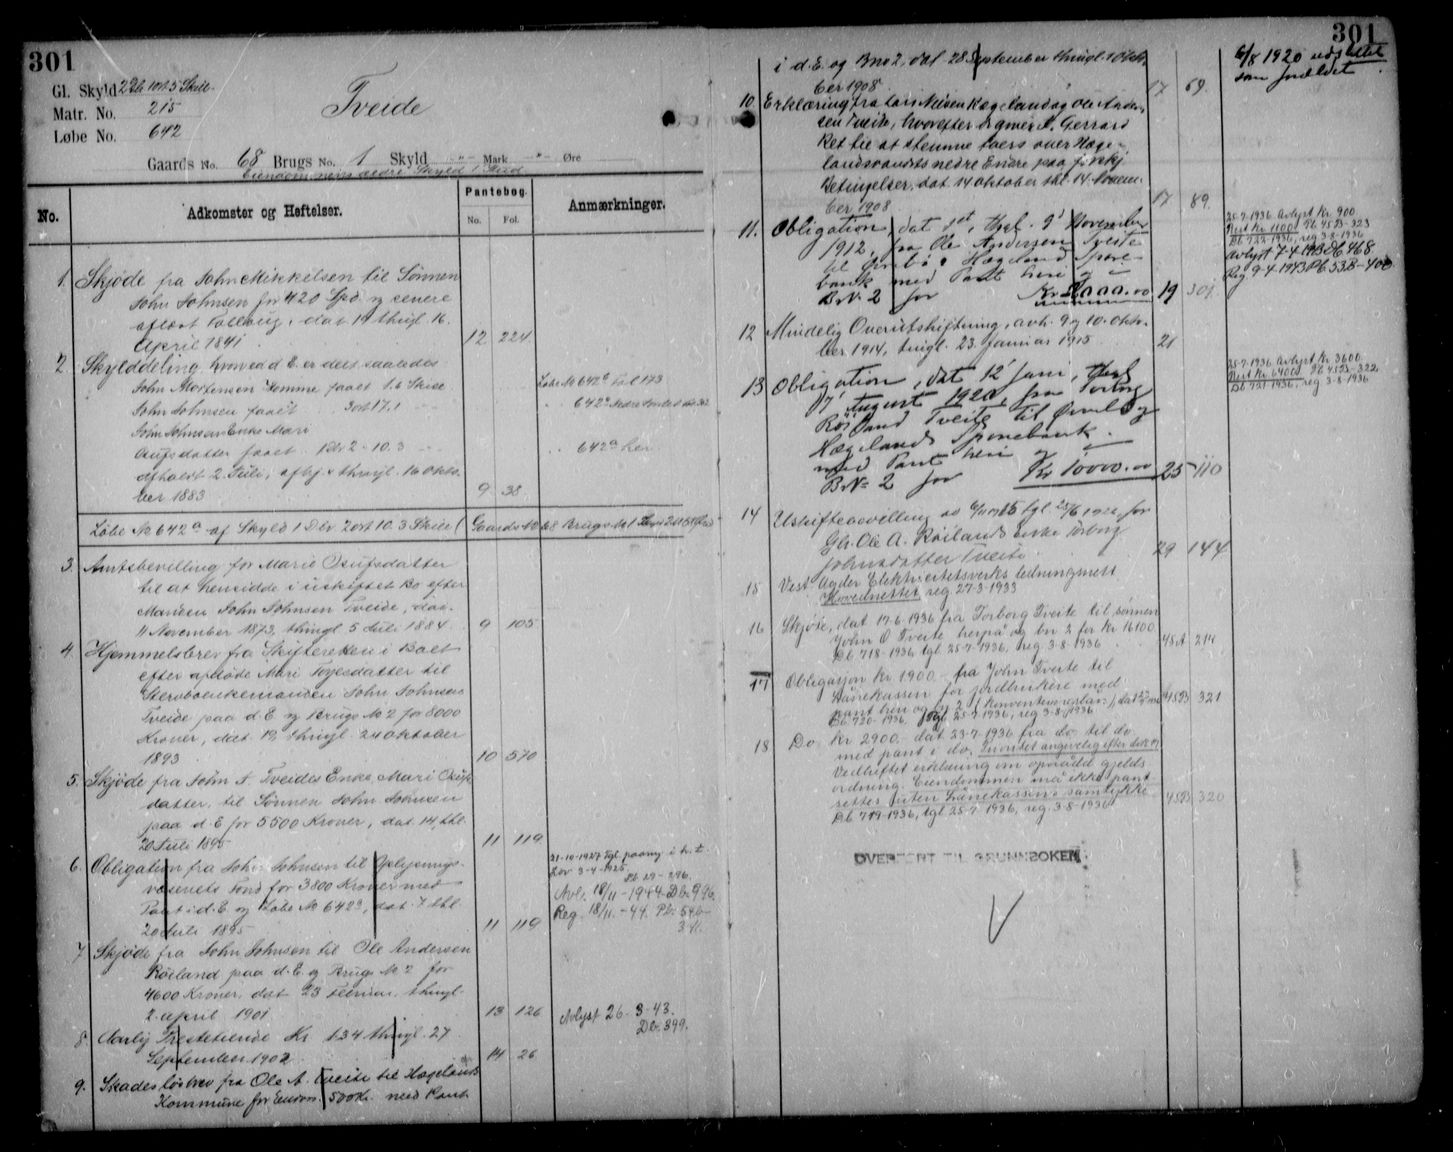 301
Gl. Skyld 2 Dlr 1 ort 5 Skill.
Matr. No. 215
Løbe No. 642
Tveide
Gaards No. 68 Brugs No. 1 Skyld " Mark " Øre
Eiendommens ældre Skyld
No.
Adkomster og Heftelser.
Pantebog.
No. Fol.
Anmærkninger.
1. Skjøde fra John Mikkelsen til Sønnen
John Johnsen for 420 Spd. og senere
aflæst dat 14 thingl. 16.
April 1841 12 224
2. Skylddeling, hvorved d. E. er delt saaledes
John Mortensen Homme faaet 1.6 Skill Løbe No 642 Fol 173
John Johnsen faaet 3 ort 17.1
John Johnsens Enke Mari
Osufsdatter faaet 1 Dlr 2-10.3 642a her
afholdt 2 Juli, afhj. & thingl. 16 Okto-
ber 1883 9 38
Løbe No 642a af Skyld 1 Dlr 2 ort 10.3 Skill (Gaards No 68 Brugs No 1
3. Amtsbevilling for Marie Osufsdatter
til at hensidde i uskiftet Bo efter
Manden John Johnsen Tveide, dat.
11 November 1873, thingl 5 Juli 1884. 9 105
4. Hjemmelsbrev fra Skifteretten i Boet
efter afdøde Mari Tovesdatter til
Stervboenkemanden John Johnsen
Tveide paa d. E og Brugs No 2 for 8000
Kroner, dat. 19, thingl. 24 Oktober
1893 10 570
5. Skjøde fra John J. Tveides Enke, Mari Osufs-
datter, til Sønnen John Johnsen
paa d. E for 5500 Kroner, dat 14, thl.
20 Juli 1895 11 119
6. Obligation fra John Johnsen til Oplysnings-
væsenets Fond for 3800 Kroner med
Pant i d. E og Løbe No 642a, dat. 7 thl.
20 Juli 1895 11 119
21-10-1927 tgl. paany i h. t.
Lov 3-4-1925
Pb. 29-296.
Avl. 18/11-1944 Db. 996.
Reg. 18/11-44. Pb. 54b-
341.
7. Skjøde fra John Johnsen til Ole Andersen
Røiland paa d. E. og Brugs No 2 for
4600 Kroner, dat 23 Februar, thingl.
2 April 1901 13 126
8. Aarlig Præstetiende Kr 1.34 thingl. 27
September 1902 14 26
Avlyst 26-3-43.
Db. 399.
9. Skadesløsbrev fra Ole A. Tveite til Hægelands
Kommune for Eiendom. 500 Kr. med Pant
301
i d. E. og Brno 2, dat. 28 September thingl. 1 Okto-
ber 1908 17 69.
10. Erklæring fra Lars Nilsen Hægeland og Ole Ander-
sen Tveite, hvorefter Ingeniør P. Gerrard
Ret til at stemme tvers over Hæge-
landsvandets nedre Endre paa forskj.
Betingelser, dat. 14 Oktober thl. 14 Novem-
ber 1908 17 89.
6/8 1920 udslettet
som forældet.
11. Obligation, dat 1st, thgl. 9d November
1912, fra Ole Andersen Tveite
til Øvrebø & Hægeland Spare-
bank med Pant heri og i
Br.No 2 for 19 301
25-7-1936 Avlyst Kr. 900
Rest Kr. 1100 Pb 45B-323
Db 722-1936, reg 3-8-1936
Avlyst 7-4-1943 Db 468
Reg 9-4-1943 Pb 53B-400
12 Mindelig Overutskiftning, avh. 9 og 10. Okto-
ber 1914, tingl. 23. Januar 1915 21
13 Obligation, dat 12' Juni, thgl
7' August 1920, fra Torborg
Røiland Tveite til Øvrebø og
Hægelands Sparebank.
med Pant heri og i
Br No 2 for Kr 10000.00 25 110
25-7-1936 Avlyst Kr. 3600
Rest Kr. 6400 Pb 45B-322
Db 721-1936, reg 3-8-1936
14 Uskiftebevilling
Gbr. Ole A. Røilands enke Torborg
Johnsdatter Tveite 29 144
15 Vest Agder Elektricitetsverks ledningsnett
Hovednettet reg 27-3-1933
16 Skjøte, dat 17-6-1936 fra Torborg Tveite til sønnen
John O Tveite herpå og bnr 2 for kr 16100
Db 718-1936, tgl 25-7-1936, reg 3-8-1936 45A 214
17 Obligasjon Kr 1900.- fra John Tveite til
Lånekassen for jordbrukere med
pant heri og bnr 2
Db 720-1936, tgl 25-7-1936, reg 3-8-1936 45B 321
18 Do. Kr 2900.- dat 23-7-1936 fra do. til do.
med pant i do. Prioritet angivelig efter
Vedheftet erklæring om opnådd gjelds-
ordning. Eiendommen må ikke pant-
settes uten Lånekassens samtykke
Db 719-1936, tgl 25-7-1936, reg 3-8-1936 45B 320
OVERFØRT TIL GRUNNBOKEN